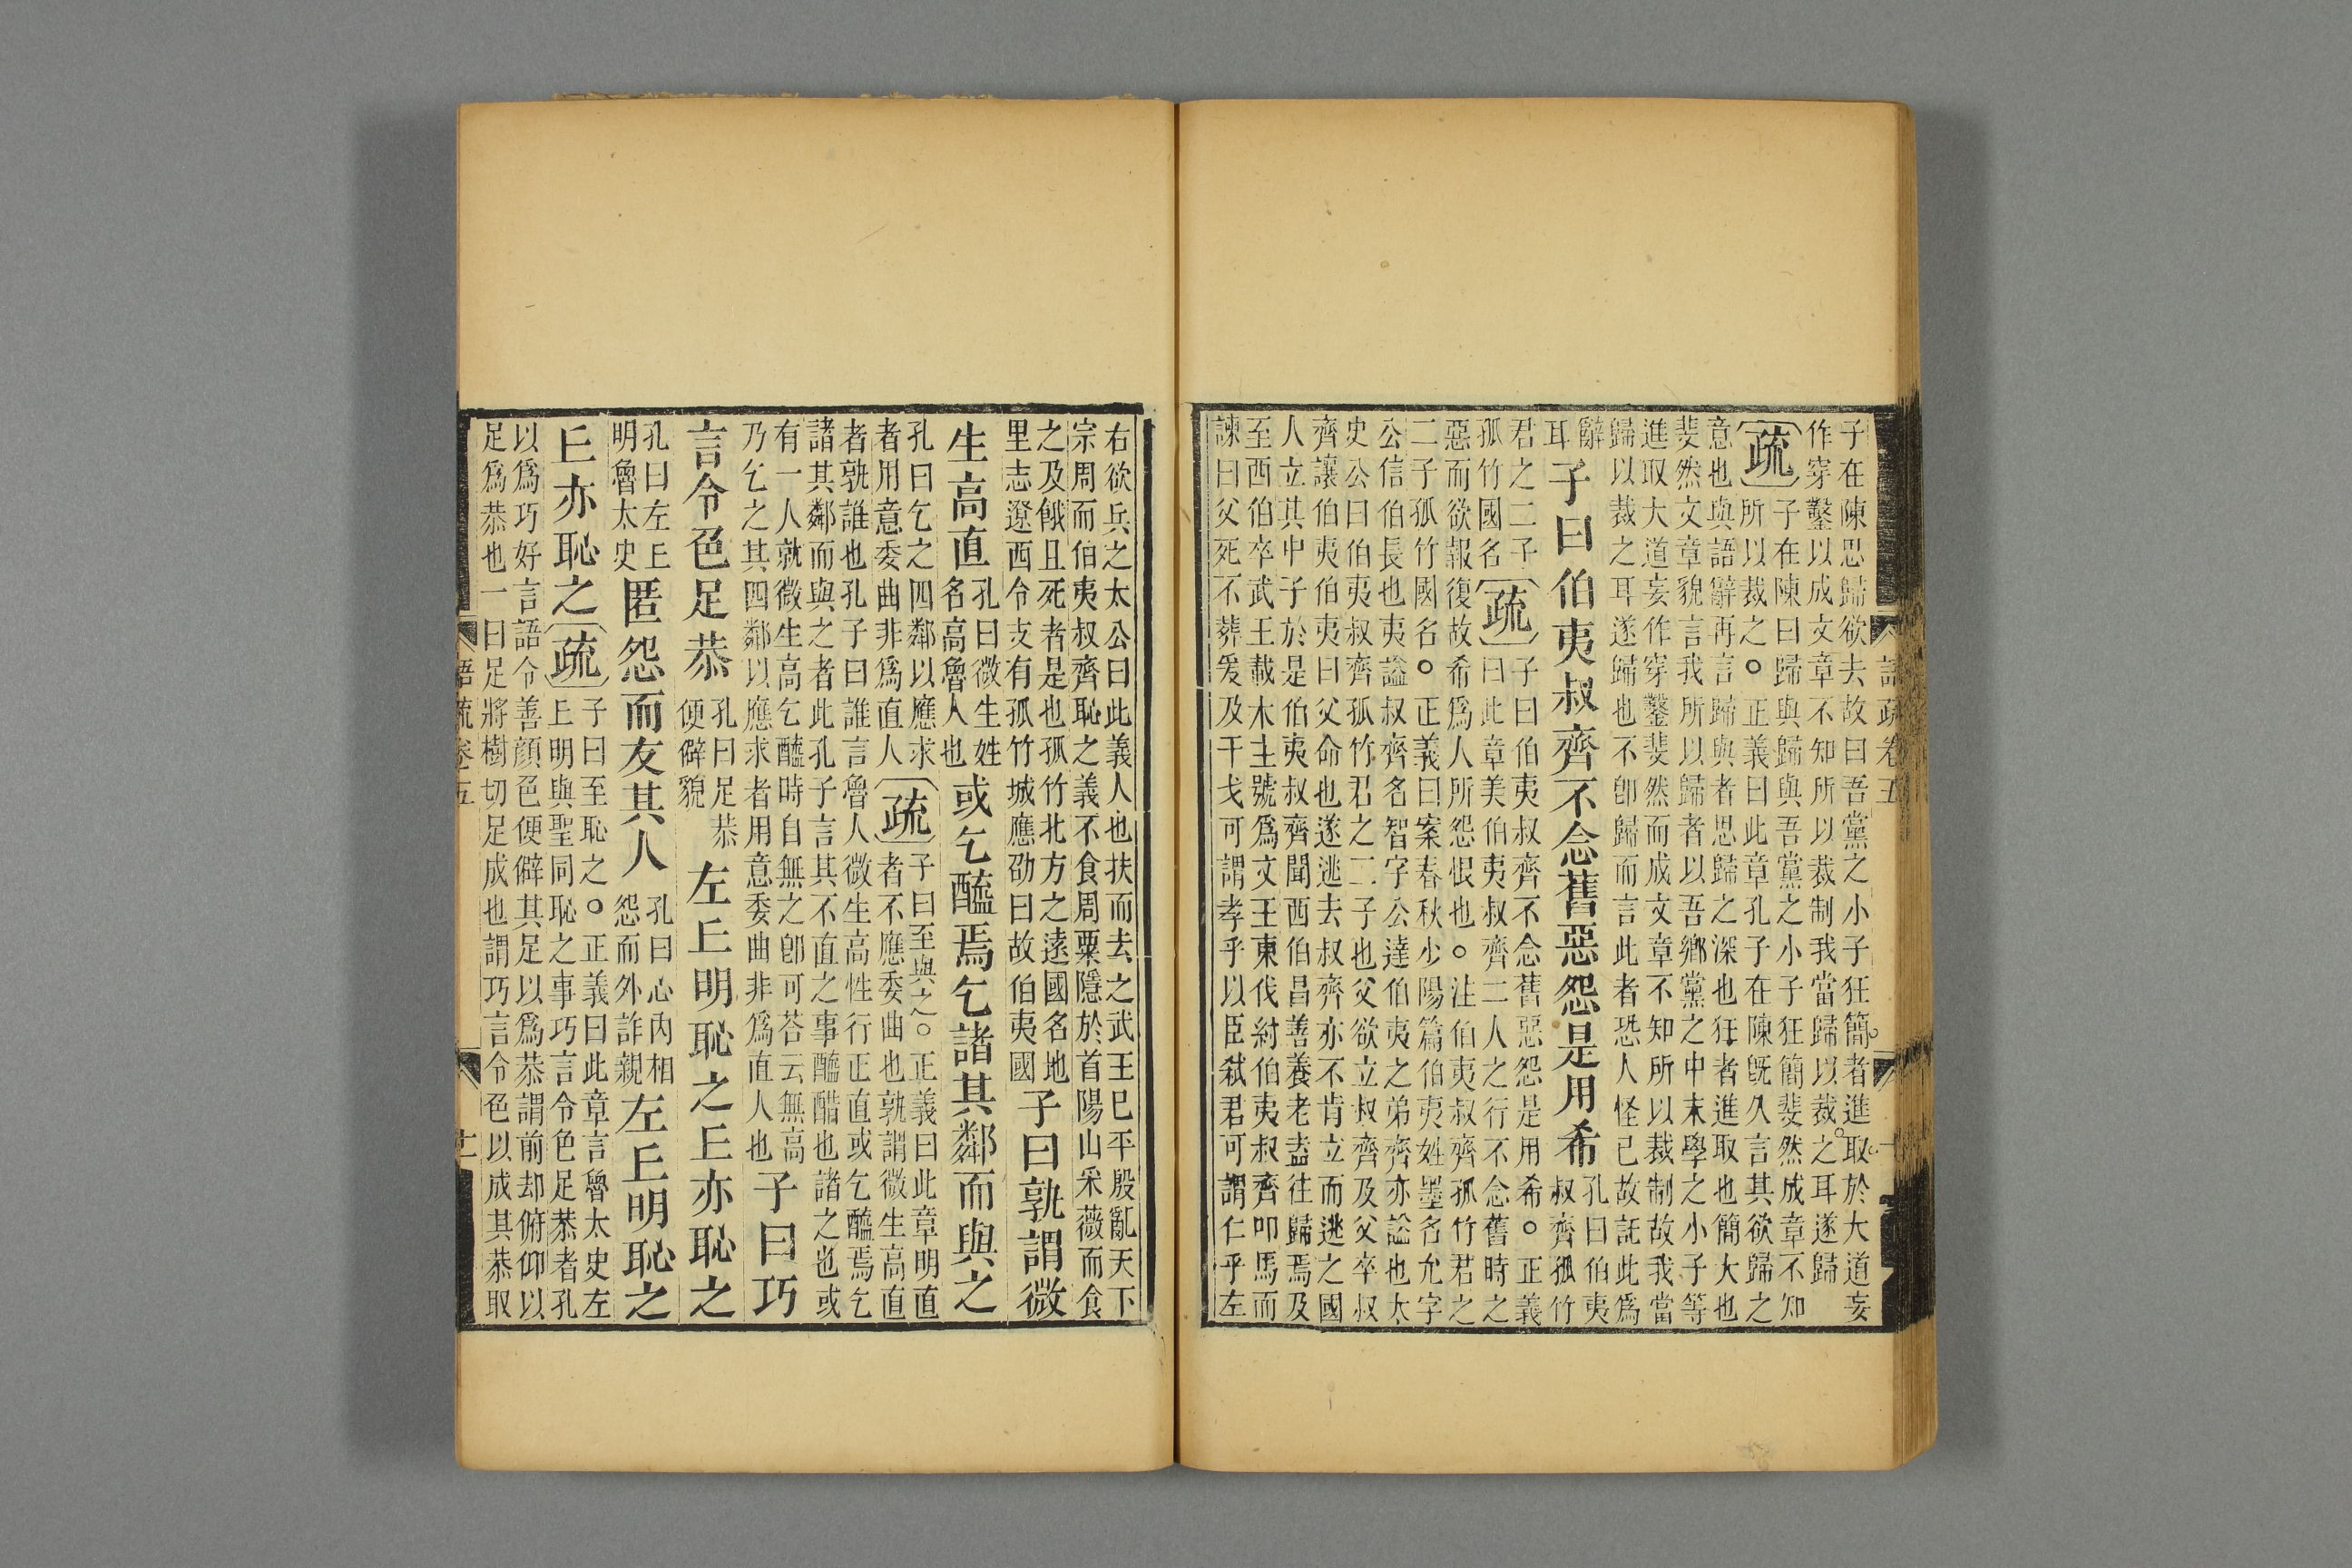 子在陳思歸欲去故曰吾黨之小子狂簡者進取於大道妄
作穿鑿以成文章不知所以裁制我當歸以裁之耳遂歸
疏
子在陳曰歸與歸與吾黨之小子狂簡斐然成章不知
所以裁之○正義曰此章孔子在陳旣久言其欲歸之
意也與語辭再言歸與者思歸之深也狂者進取也簡大也
斐然文章貌言我所以歸者以吾鄉黨之中末學之小子等
進取大道妄作穿鑿斐然而成文章不知所以裁制故我當
歸以裁之耳遂歸也不卽歸而言此者恐人怪已故託此爲
辭
耳
子曰伯夷叔齊不念舊惡怨是用希
孔曰伯夷
叔齊孤竹
君之二子
孤竹國名
疏
子曰伯夷叔齊不念舊惡怨是用希○正義
曰此章美伯夷叔齊二人之行不念舊時之
惡而欲報復故希爲人所怨恨也○注伯夷叔齊孤竹君之
二子孤竹國名○正義曰案春秋少陽篇伯夷姓墨名允字
公信伯長也夷謚叔齊名智字公達伯夷之弟齊亦謚也太
史公曰伯夷叔齊孤竹君之二子也父欲立叔齊及父卒叔
齊讓伯夷伯夷曰父命也遂逃去叔齊亦不肯立而逃之國
人立其中子於是伯夷叔齊聞西伯昌善養老盍往歸焉及
至西伯卒武王載木主號爲文王東伐紂伯夷叔齊叩馬而
諫曰父死不葬爰及干戈可謂孝乎以臣弒君可謂仁乎左
右欲兵之太公曰此義人也扶而去之武王已平殷亂天下
宗周而伯夷叔齊恥之義不食周粟隱於首陽山采薇而食
之及餓且死者是也孤竹北方之遠國名地
里志遼西令支有孤竹城應劭曰故伯夷國
子曰孰謂微
生高直
孔曰微生姓
名高魯人也
或乞醯焉乞諸其鄰而與之
孔曰乞之四鄰以應求
者用意委曲非爲直人
疏
子曰至與之○正義曰此章明直
者不應委曲也孰謂微生高直
者孰誰也孔子曰誰言魯人微生高性行正直或乞醯焉乞
諸其鄰而與之者此孔子言其不直之事醯醋也諸之也或
有一人就微生高乞醯時自無之卽可荅云無高
乃乞之其四鄰以應求者用意委曲非爲直人也
子曰巧
言令色足恭
孔曰足恭
便僻貌
左丘明恥之丘亦恥之
孔曰左丘
明魯太史
匿怨而友其人
孔曰心內相
怨而外詐親
左丘明恥之
丘亦恥之
疏
子曰至恥之○正義曰此章言魯太史左
丘明與聖同恥之事巧言令色足恭者孔
以爲巧好言語令善顏色便僻其足以爲恭謂前却俯仰以
足爲恭也一曰足將樹切足成也謂巧言令色以成其恭取